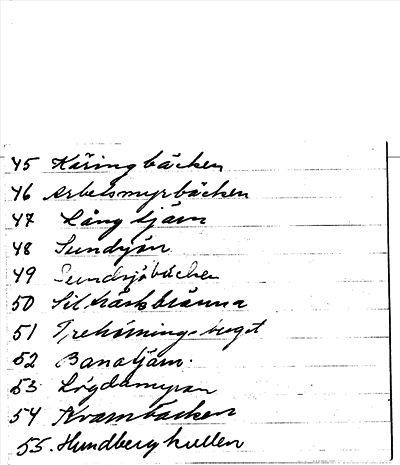 45 Käringbäcken
46 Arbelsmyrbäcken
47 Lång tjärn
48 Sundsjön
49 Sundsjöbäcken
50 Silträskbränna
51 Trehörningsberget
52 Banatjärn.
53 Lögdåmyran
54 Krambäcken
55. Hundbergkullen